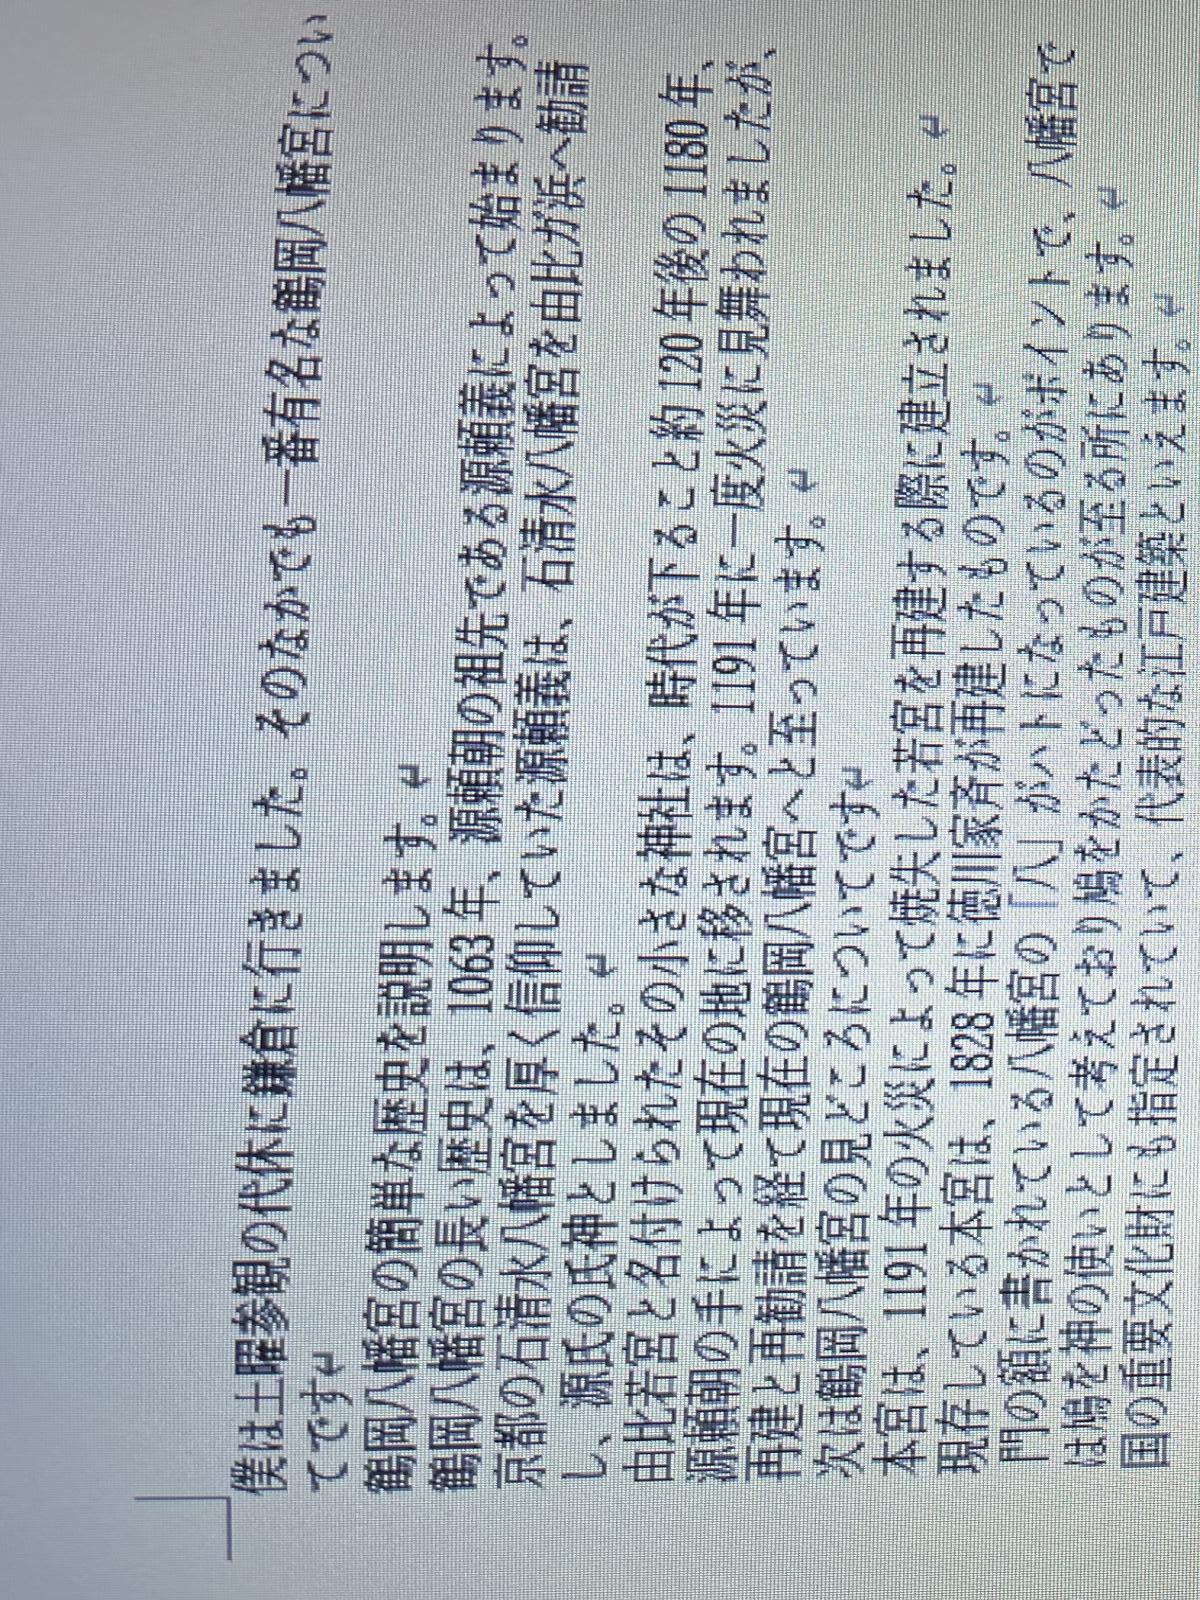 僕は土曜参観の代休に鎌倉に行きました。そのなかでも一番有名な鶴岡八幡宮につい
てです↵
鶴岡八幡宮の簡単な歴史を説明します。↵
鶴岡八幡宮の長い歴史は、1063 年、源頼朝の祖先である源頼義によって始まります。
京都の石清水八幡宮を厚く信仰していた源頼義は、石清水八幡宮を由比ガ浜へ勧請
し、源氏の氏神としました。↵
由比若宮と名付けられたその小さな神社は、時代が下ること約 120 年後の 1180 年、
源頼朝の手によって現在の地に移されます。1191 年に一度火災に見舞われましたが、
再建と再勧請を経て現在の鶴岡八幡宮へと至っています。↵
次は鶴岡八幡宮の見どころについてです↵
本宮は、1191 年の火災によって焼失した若宮を再建する際に建立されました。↵
現存している本宮は、1828 年に徳川家斉が再建したものです。↵
門の額に書かれている八幡宮の「八」がハトになっているのがポイントで、八幡宮で
は鳩を神の使いとして考えており鳩をかたどったものが至る所にあります。↵
国の重要文化財にも指定されていて、代表的な江戸建築といえます。↵